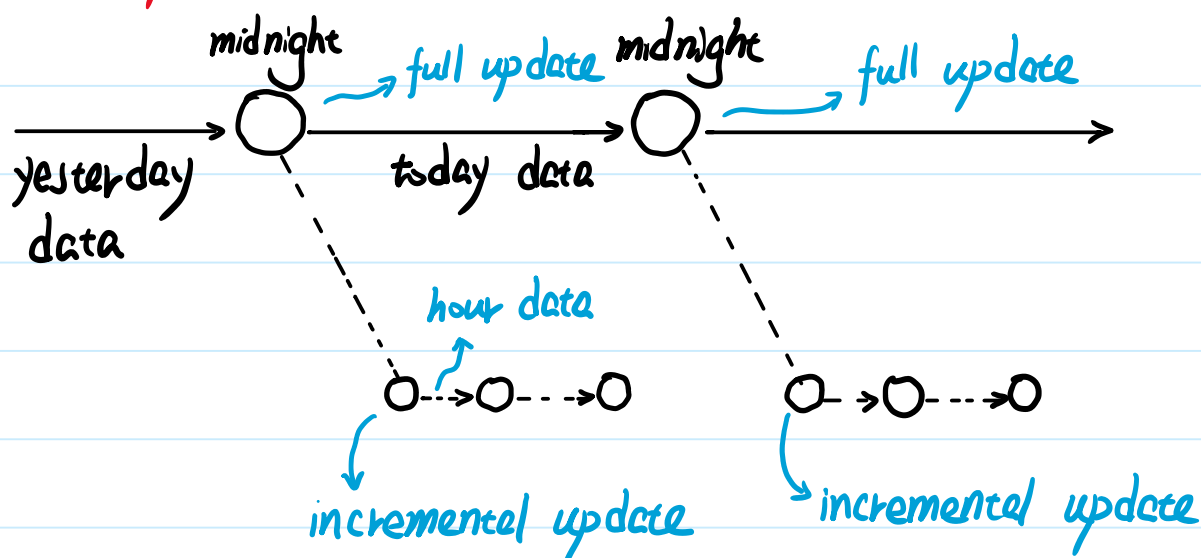 midnight
full update
midnight
full update
yesterday
data
today data
hour data
incremental update
incremental update